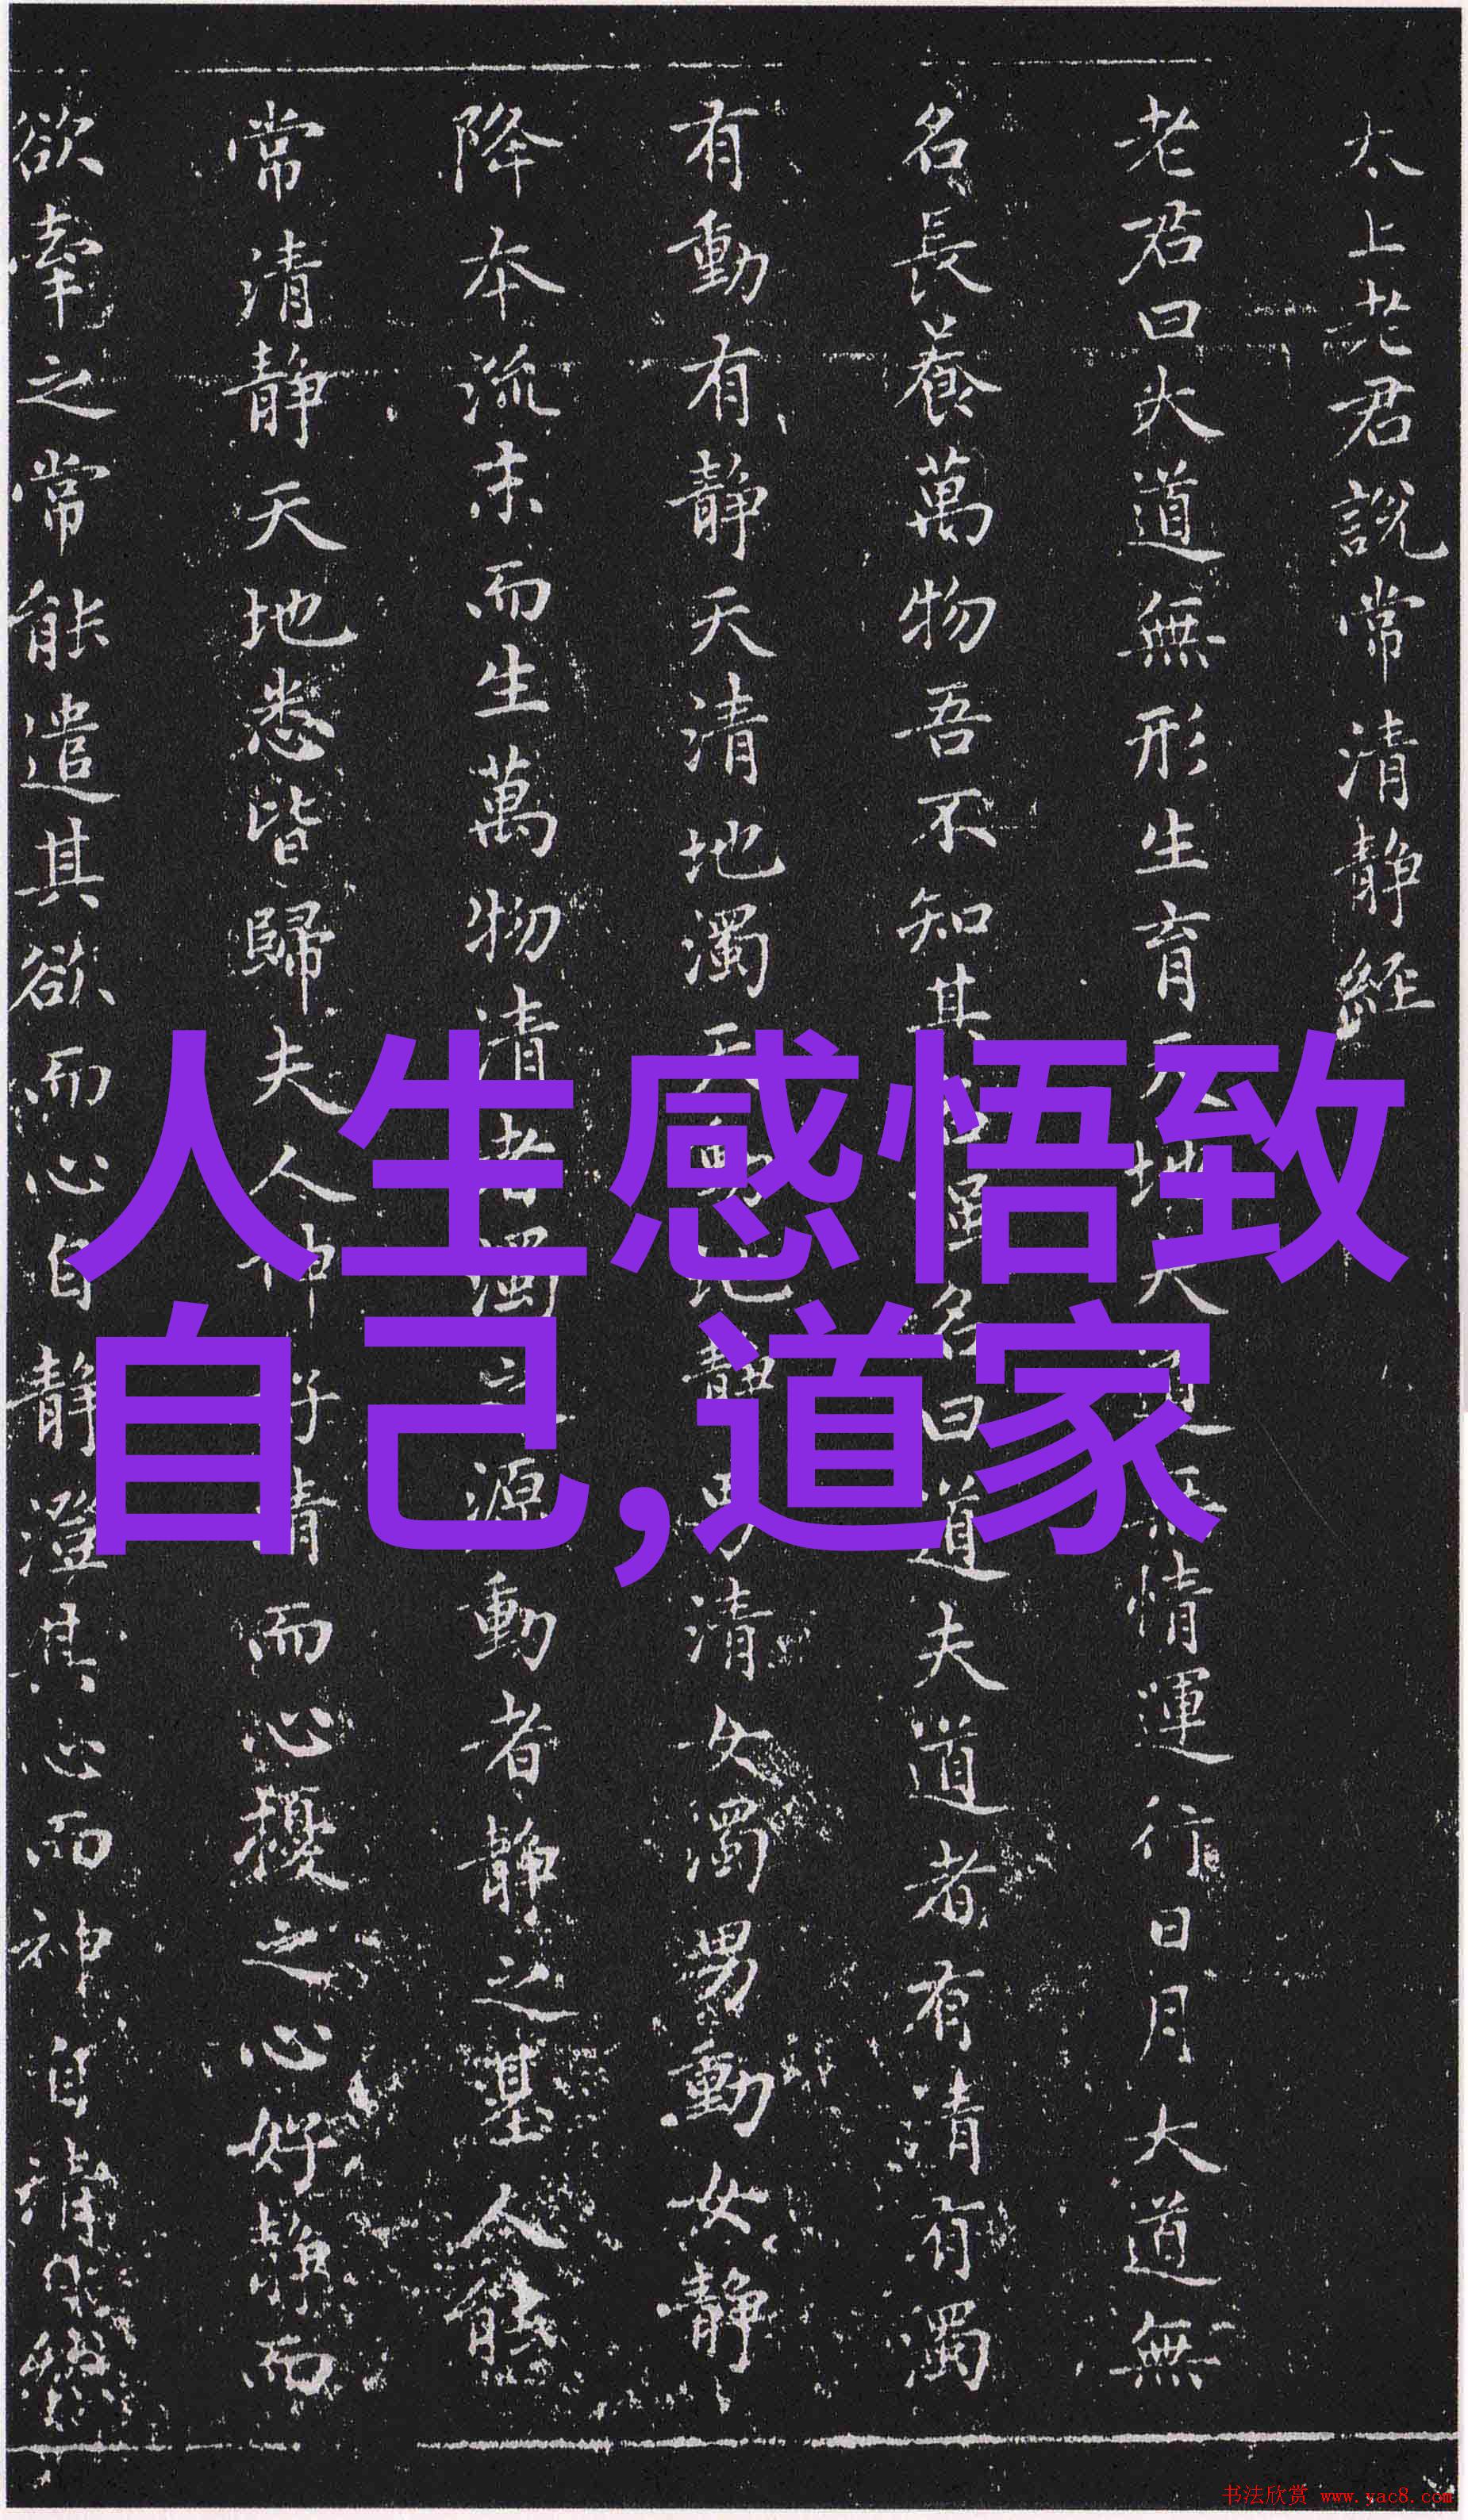 太上老君說常清静經
老君曰大道無形生育天地大道無情運行日月大道無
名長養萬物吾不知其名強名曰道夫道者有清有濁
有動有静天清地濁天動地静男清女濁男動女静
降本流末而生萬物清者濁之源動者静之基人能
常清静天地悉皆歸夫人神好清而心擾之心好静而
欲牽之常能遣其欲而心自静澄其心而神自清
人生感悟致
自己,道家
书法欣赏 www.yac8.com